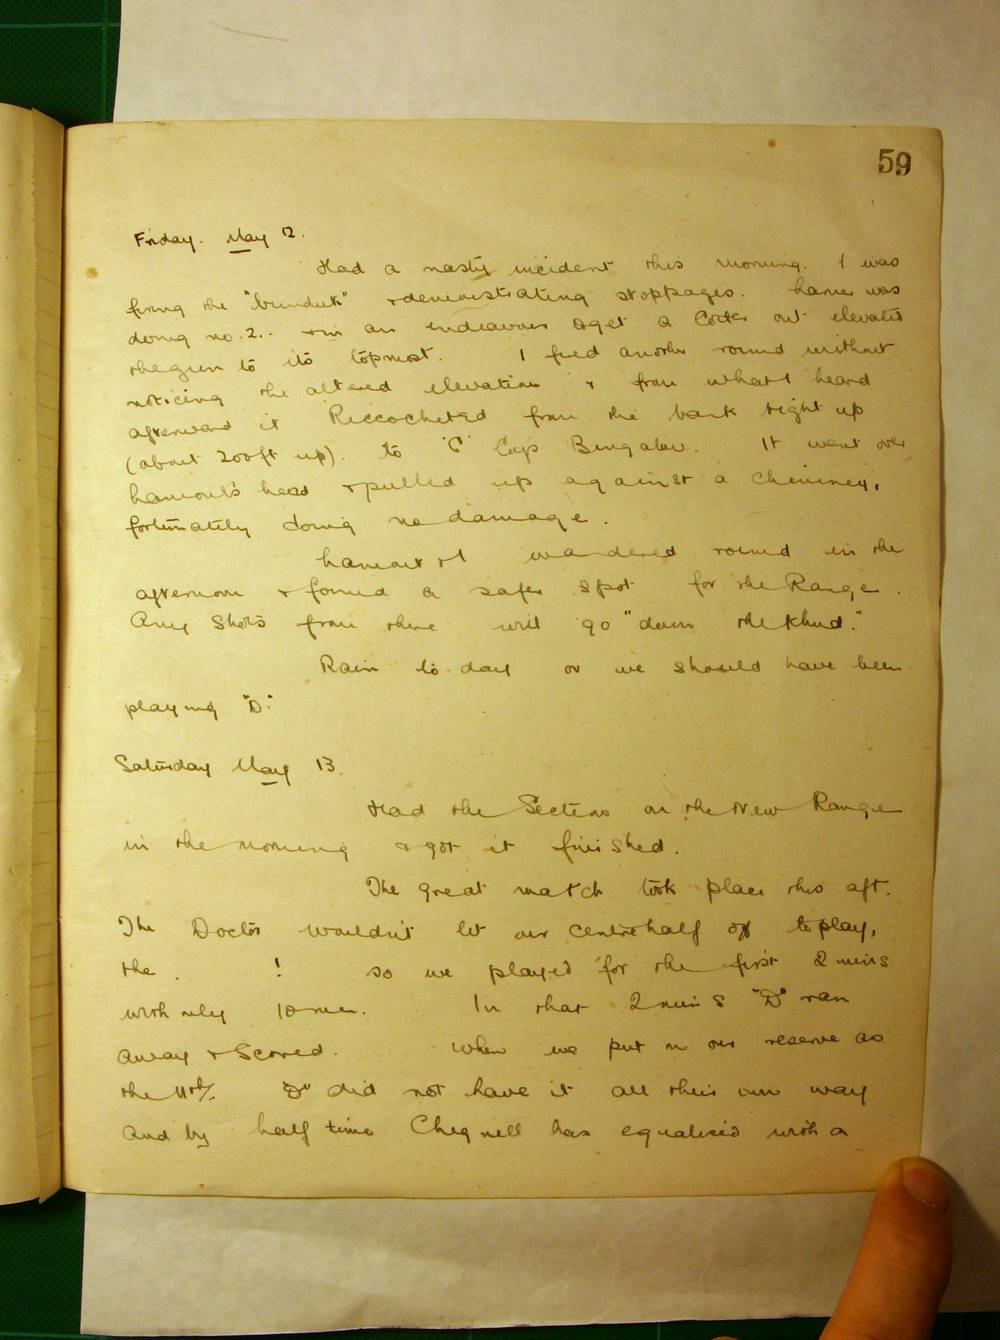 59
Friday. May 12.
Had a nasty incident this morning. I was
firing the "bunduk" & demonstrating stoppages. was
doing no. 2.. & in an endeavour to get a out elevated
the gun to its topmost. I fired another round without
noticing the altered elevation & from what I heard
afterward it Riccocheted from the bank right up
(about 200ft up). to 'C' Coy's Bungalow. It went over
head & pulled up against a chimney,
fortunately doing no damage.
& I wandered round in the
afternoon & found a safer spot for the Range.
Any shots from there will go "down the Khud."
Rain to-day or we should have been
playing "D."
Saturday May 13.
Had the Section on the New Range
in the morning & got it finished.
The great match took place this aft.
The Doctor wouldn't let our centre half to play,
the . ! so we played for the first 2 mins
with only 10 men. In that 2 mins "D" ran
away & Scored. When we put in our reserve as
the 11th/. "D" did not have it all their own way
and by half time has equalised with a